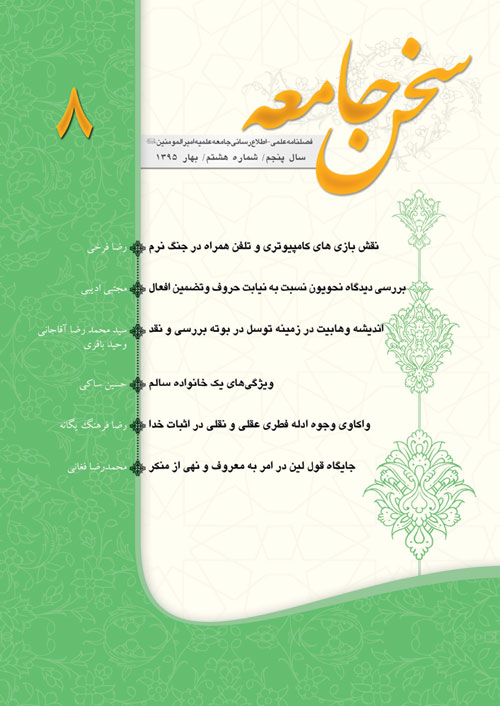 سخن جامعه
۸
فصلنامه علمی-اطلاع رسانی جامعه علمیه امیرالمومنین
سال پنجم/ شماره هشتم/ بهار ۱۳۹۵
نقش بازی های کامپیوتری و تلفن همراه در جنگ نرم رضا فرخی
بررسی دیدگاه نحویون نسبت به نیابت حروف وتضمین افعال مجتبی ادیبی
اندیشه وهابیت در زمینه توسل در بوته بررسی و نقد سید محمد رضا آقاجانی
وحید باقری
ویژگی‌های یک خانواده سالم حسین ساکی
واکاوی وجوه ادله فطری عقلی و نقلی در اثبات خدا رضا فرهنگ یگانه
جایگاه قول لین در امر به معروف و نهی از منکر محمدرضا فغانی